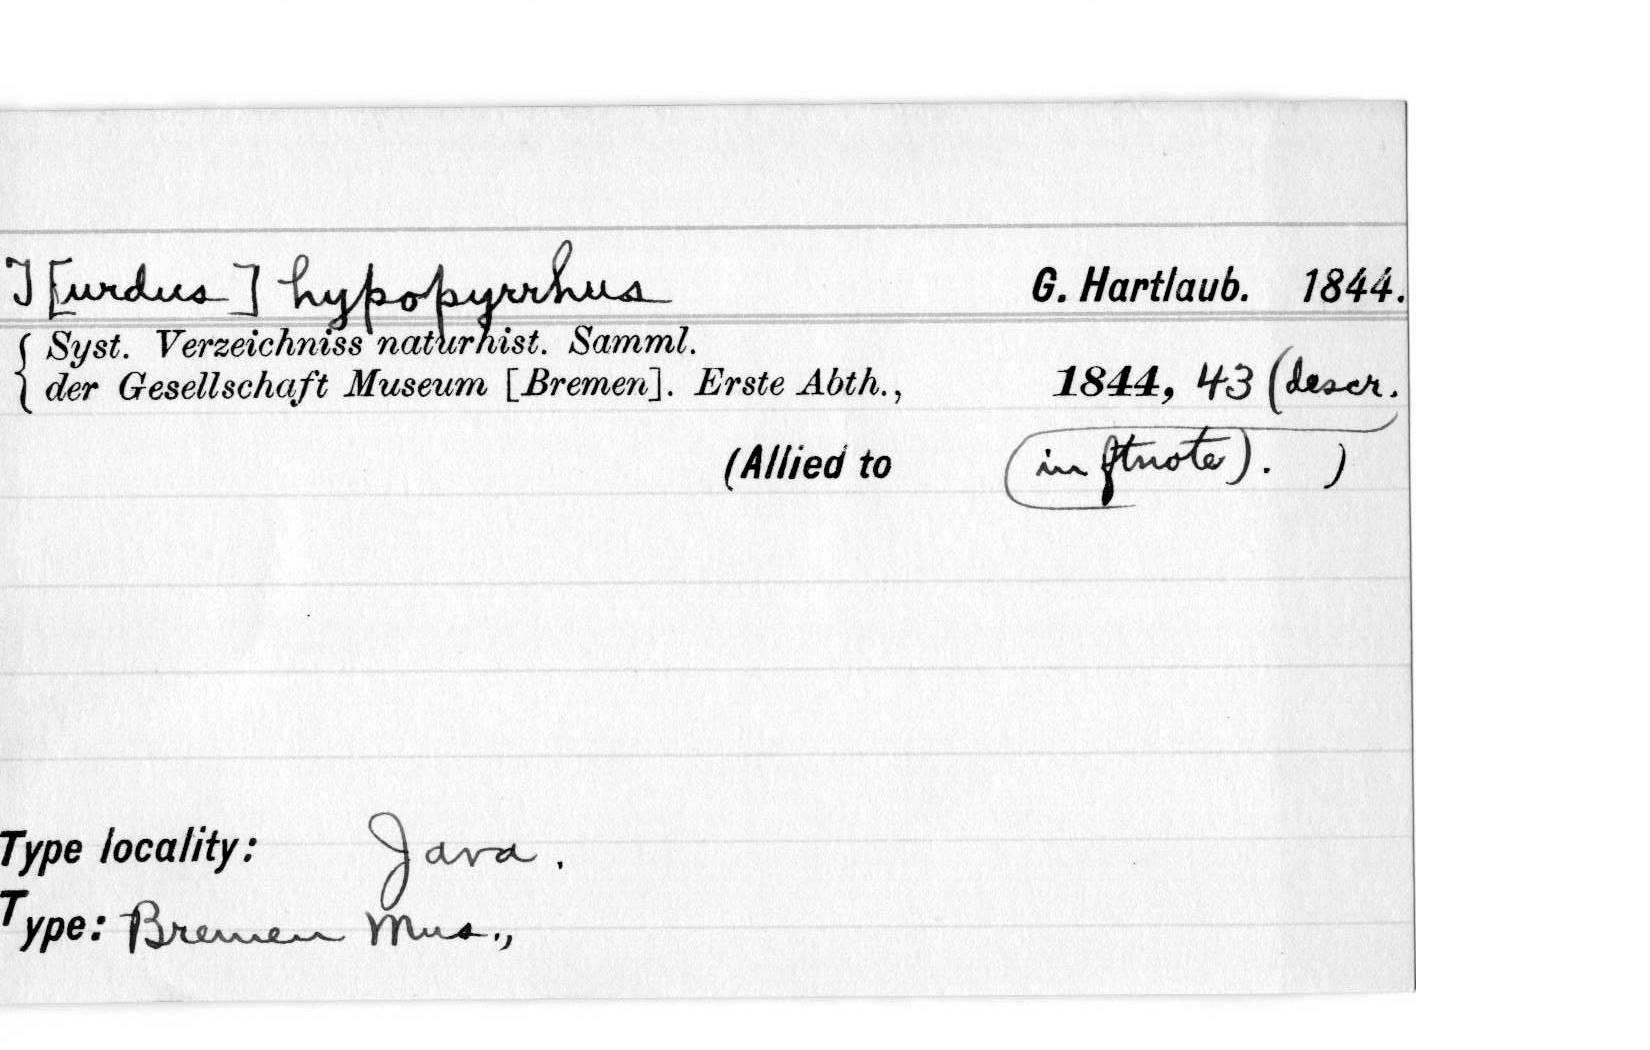 T[urdus] hypopyrrhus G. Hartlaub. 1844.
Syst. Verzeichniss naturhist. Samml.
der Gesellschaft Museum [Bremen]. Erste Abth., 1844, 43 (descr.
(Allied to in ftnote). )
Type locality: Java.
Type: Bremen Mus.,